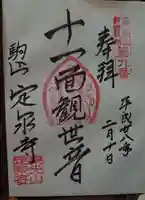 奉拝
平成廿八年
二月十日
十一面観世音
駒山 定泉寺